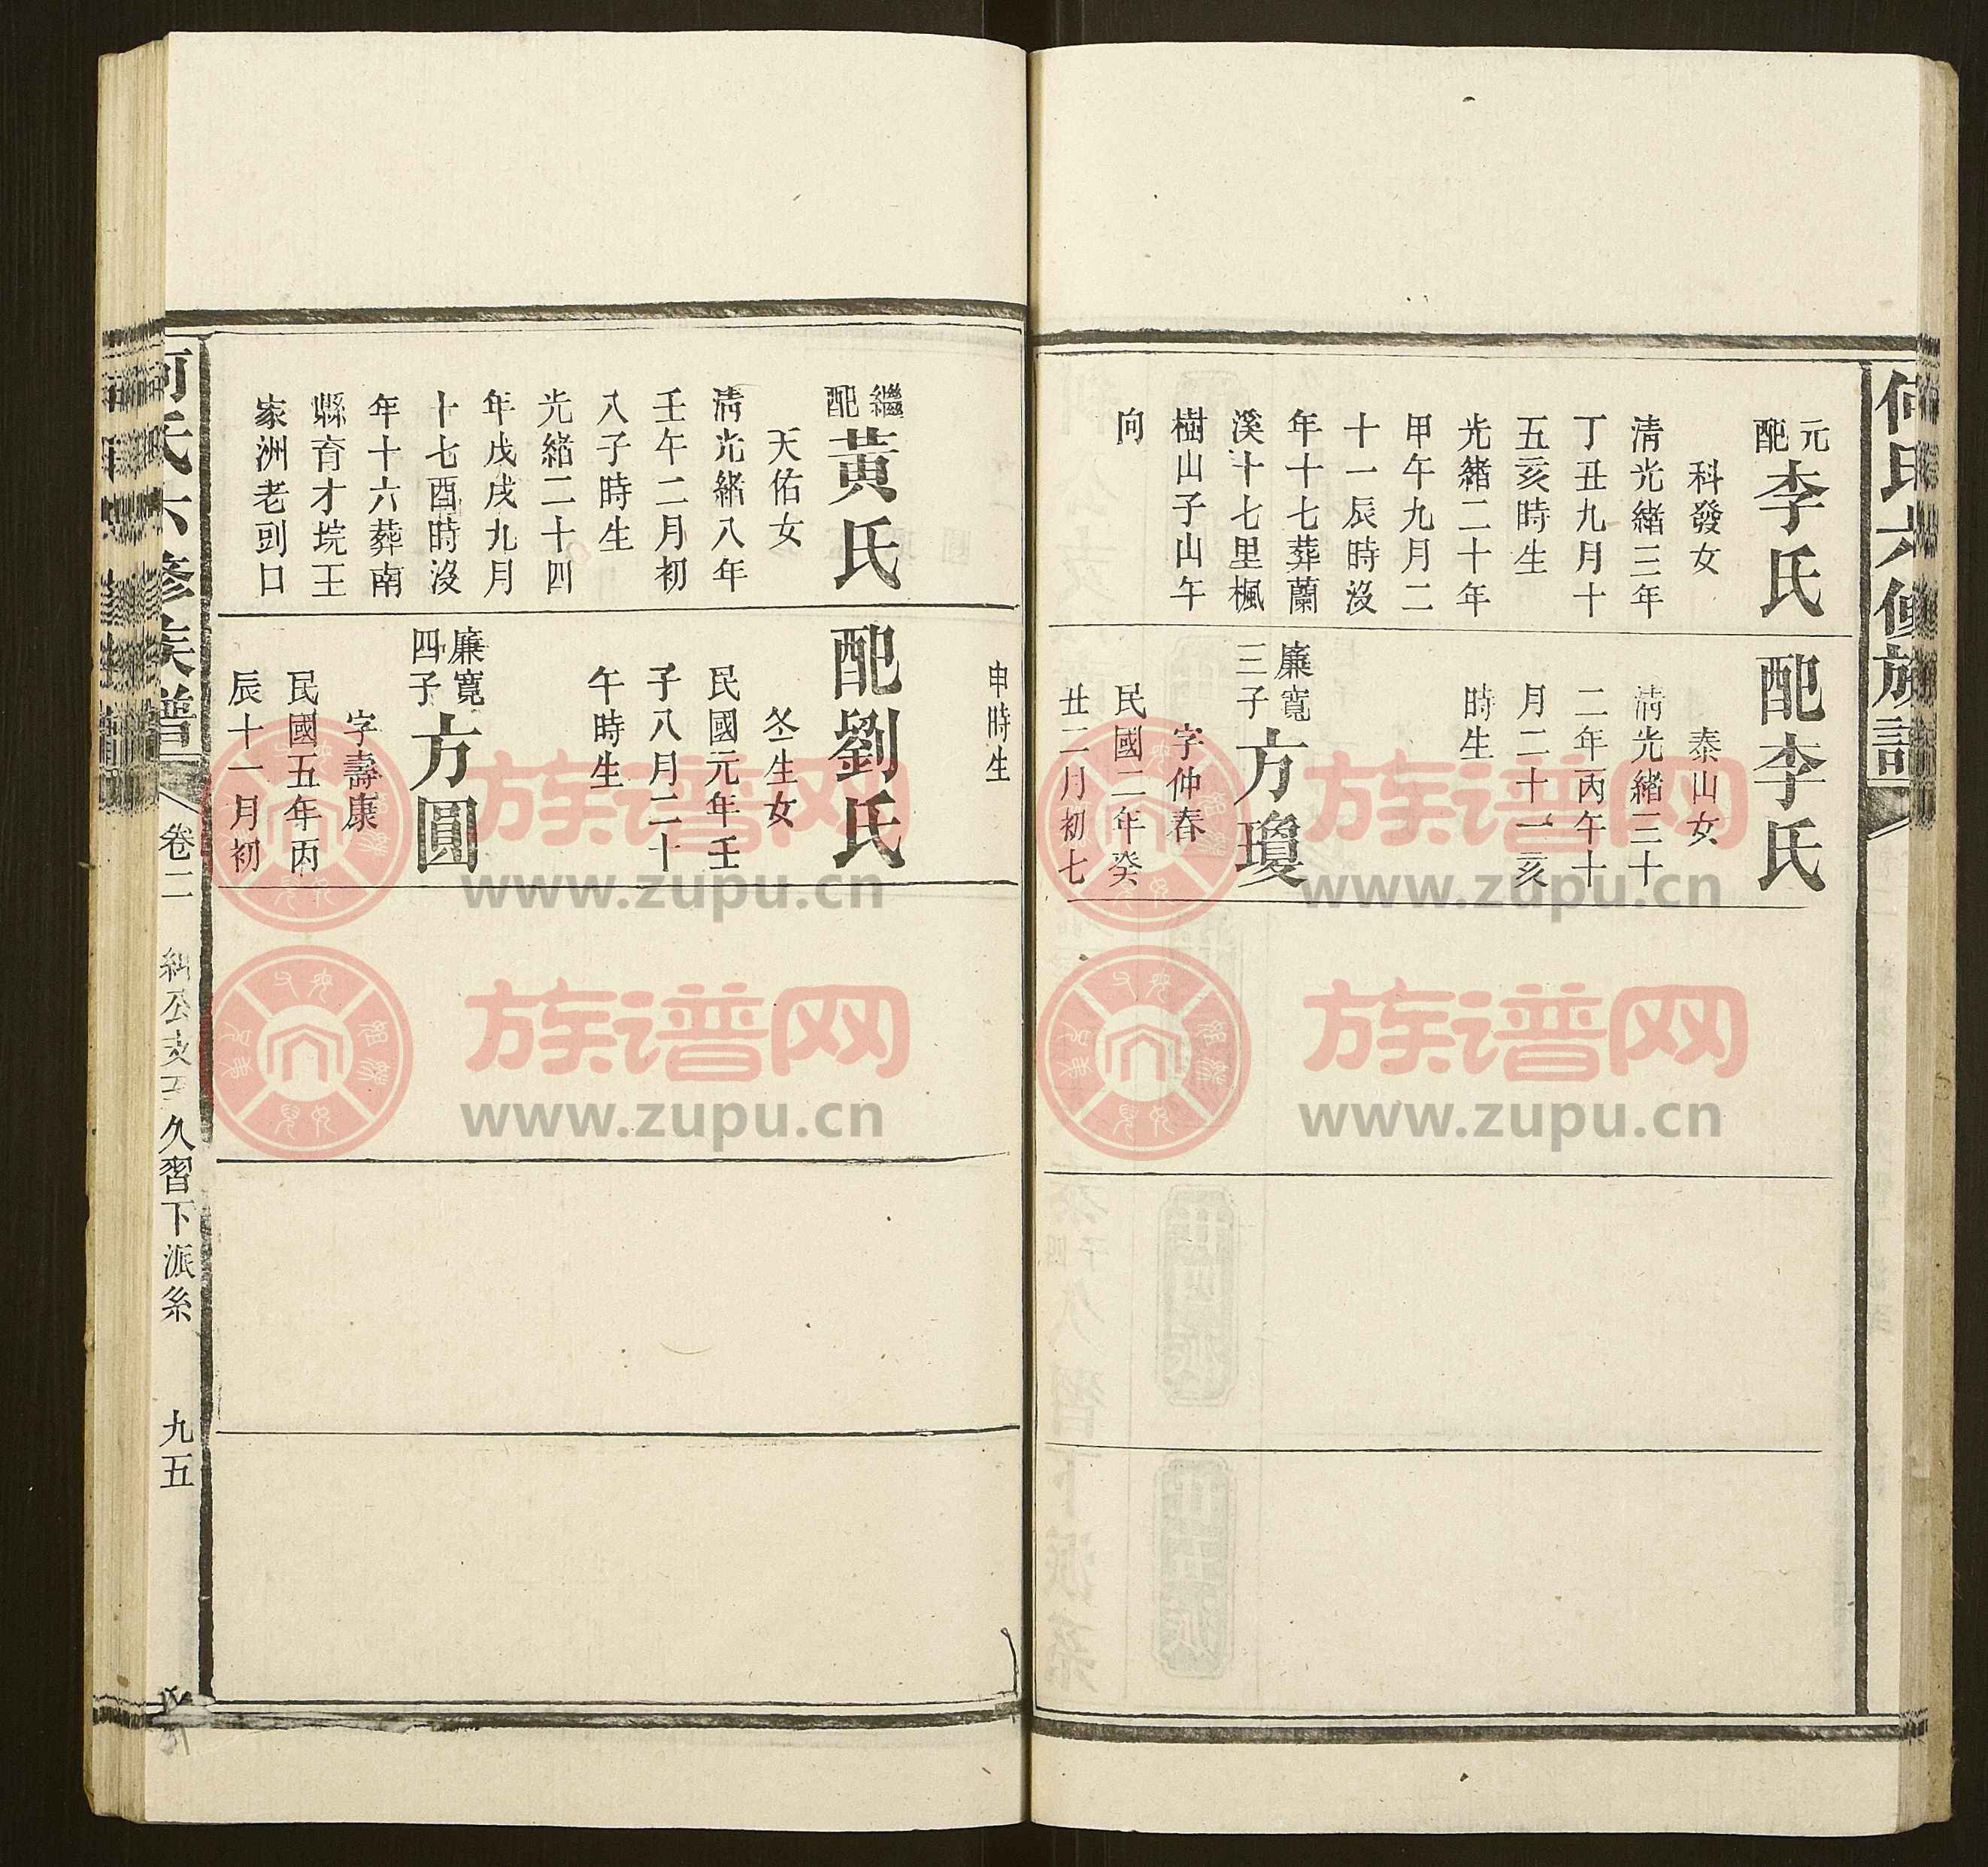 何氏六修族譜
元配李氏
科發女
清光緒三年
丁丑九月十
五亥時生
光緒二十年
甲午九月二
十一辰時沒
年十七葬蘭
溪十七里楓
樹山子山午
向
配李氏
泰山女
清光緒三十
二年丙午十
月二十一亥
時生
廉寬三子方瓊
字仲春
民國二年癸
丑二月初七
繼配黃氏
天佑女
清光緒八年
壬午二月初
八子時生
光緒二十四
年戊戌九月
十七酉時沒
年十六葬南
縣育才垸王
家洲老剅口
申時生
配劉氏
冬生女
民國元年壬
子八月二十
午時生
廉寬四子方圓
字壽康
民國五年丙
辰十一月初
何氏六修族譜
卷二
公支
久習下派系
九五
族谱网
www.zupu.cn
族谱网
www.zupu.cn
族谱网
www.zupu.cn
族谱网
www.zupu.cn